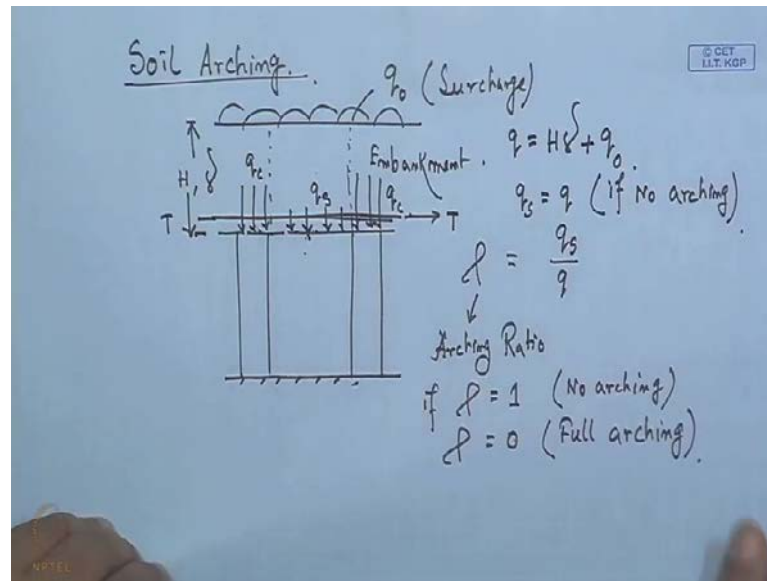 Soil Arching.
© CET
I.I.T. KGP
q₀ (Surcharge)
q = Hγ + q₀.
H, γ
q_c
q_s
q_c
Embankment.
q_s = q (if No arching).
T
T
ρ = q_s / q
Arching Ratio
if ρ = 1 (No arching)
ρ = 0 (Full arching).
NPTEL